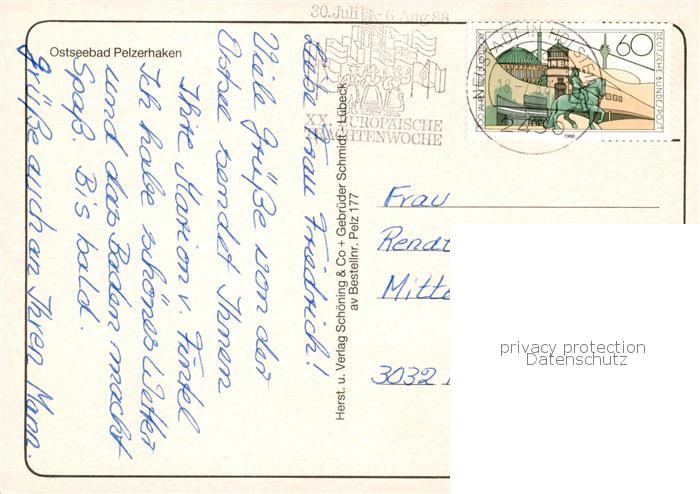 Ostseebad Pelzerhaken
30. Juli - 6. Aug. 88
XX. EUROPÄISCHE
TRACHTENWOCHE
NEUSTADT IN HOLSTEIN
2430
60
DEUTSCHE BUNDESPOST
700 JAHRE DÜSSELDORF
1988
Liebe Frau Friedrich!
Viele Grüße von der
Ostsee sendet Ihnen
Ihre Marion v. Fintel
Ich habe schönes Wetter
und das Baden macht
Spaß. Bis bald.
Grüße auch an Ihren Mann.
Herst. u. Verlag Schöning & Co + Gebrüder Schmidt, Lübeck
av Bestellnr. Pelz 177
Frau
Rendt
Mitte
3032
privacy protection
Datenschutz